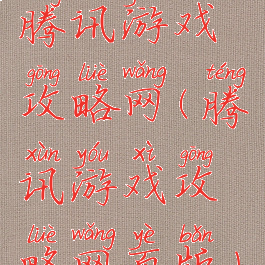 腾讯游戏
gōng lüè wǎng téng
攻略网(腾
xùn yóu xì gōng
讯游戏攻
lüè wǎng yè bǎn
略网页版)